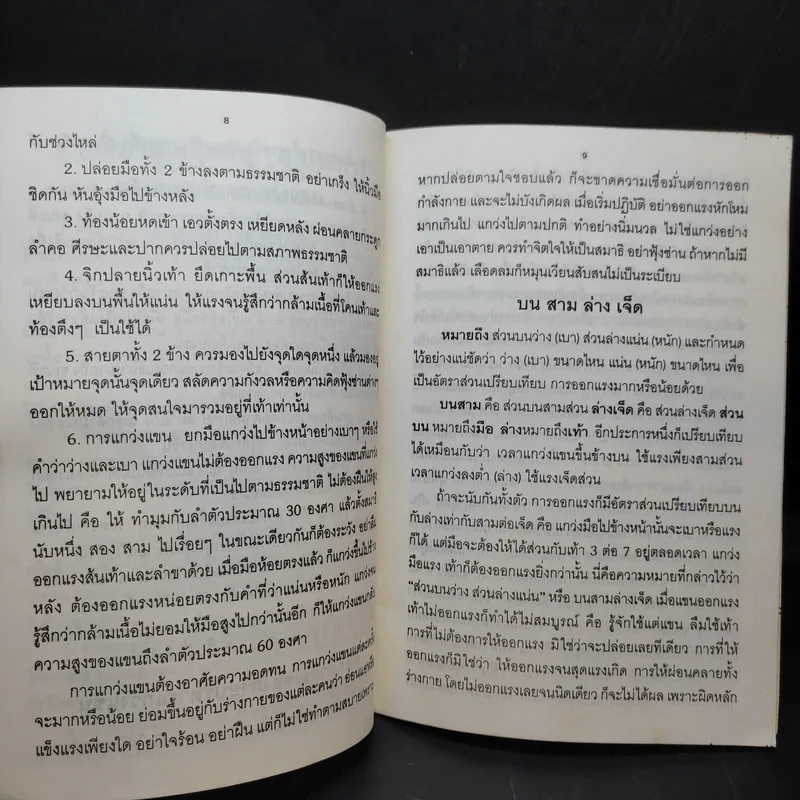 8
กับช่วงไหล่
2. ปล่อยมือทั้ง 2 ข้างลงตามธรรมชาติ อย่าเกร็ง ให้นิ้วมือ
ชิดกัน หันอุ้งมือไปข้างหลัง
3. ท้องน้อยหดเข้า เอวตั้งตรง เหยียดหลัง ผ่อนคลายกระดูก
ลำคอ ศีรษะและปากควรปล่อยไปตามสภาพธรรมชาติ
4. จิกปลายนิ้วเท้า ยึดเกาะพื้น ส่วนส้นเท้าก็ให้ออกแรง
เหยียบลงบนพื้นให้แน่น ให้แรงจนรู้สึกว่ากล้ามเนื้อที่โคนเท้าและ
ท้องตึงๆ เป็นใช้ได้
5. สายตาทั้ง 2 ข้าง ควรมองไปยังจุดใดจุดหนึ่ง แล้วมองอยู่
เป้าหมายจุดนั้นจุดเดียว สลัดความกังวลหรือความคิดฟุ้งซ่านต่างๆ
ออกให้หมด ให้จุดสนใจมารวมอยู่ที่เท้าเท่านั้น
6. การแกว่งแขน ยกมือแกว่งไปข้างหน้าอย่างเบาๆ หรือใช้
คำว่าว่างและเบา แกว่งแขนไม่ต้องออกแรง ความสูงของแขนที่แกว่ง
ไป พยายามให้อยู่ในระดับที่เป็นไปตามธรรมชาติ ไม่ต้องฝืนให้สูง
เกินไป คือ ให้ ทำมุมกับลำตัวประมาณ 30 องศา แล้วตั้งสมาธิ
นับหนึ่ง สอง สาม ไปเรื่อยๆ ในขณะเดียวกันก็ต้องระวัง อย่าลืม
ออกแรงส้นเท้าและลำขาด้วย เมื่อมือห้อยตรงแล้ว ก็แกว่งขึ้นไปข้าง
หลัง ต้องออกแรงหน่อยตรงกับคำที่ว่าแน่นหรือหนัก แกว่งจน
รู้สึกว่ากล้ามเนื้อไม่ยอมให้มือสูงไปกว่านั้นอีก ก็ให้แกว่งแขนกลับ
ความสูงของแขนถึงลำตัวประมาณ 60 องศา
การแกว่งแขนต้องอาศัยความอดทน การแกว่งแขนแต่ละครั้ง
จะมากหรือน้อย ย่อมขึ้นอยู่กับร่างกายของแต่ละคนว่า อ่อนแอหรือ
แข็งแรงเพียงใด อย่าใจร้อน อย่าฝืน แต่ก็ไม่ใช่ทำตามสบายเพราะ
9
หากปล่อยตามใจชอบแล้ว ก็จะขาดความเชื่อมั่นต่อการออก
กำลังกาย และจะไม่บังเกิดผล เมื่อเริ่มปฏิบัติ อย่าออกแรงหักโหม
มากเกินไป แกว่งไปตามปกติ ทำอย่างนิ่มนวล ไม่ใช่แกว่งอย่าง
เอาเป็นเอาตาย ควรทำจิตใจให้เป็นสมาธิ อย่าฟุ้งซ่าน ถ้าหากไม่มี
สมาธิแล้ว เลือดลมก็หมุนเวียนสับสนไม่เป็นระเบียบ
บน สาม ล่าง เจ็ด
หมายถึง ส่วนบนว่าง (เบา) ส่วนล่างแน่น (หนัก) และกำหนด
ไว้อย่างแน่ชัดว่า ว่าง (เบา) ขนาดไหน แน่น (หนัก) ขนาดไหน เพื่อ
เป็นอัตราส่วนเปรียบเทียบ การออกแรงมากหรือน้อยด้วย
บนสาม คือ ส่วนบนสามส่วน ล่างเจ็ด คือ ส่วนล่างเจ็ด ส่วน
บน หมายถึงมือ ล่างหมายถึงเท้า อีกประการหนึ่งก็เปรียบเทียบ
ได้เหมือนกับว่า เวลาแกว่งแขนขึ้นข้างบน ใช้แรงเพียงสามส่วน
เวลาแกว่งลงต่ำ (ล่าง) ใช้แรงเจ็ดส่วน
ถ้าจะนับกันทั้งตัว การออกแรงก็มีอัตราส่วนเปรียบเทียบบน
กับล่างเท่ากับสามต่อเจ็ด คือ แกว่งมือไปข้างหน้านั้นจะเบาหรือแรง
ก็ได้ แต่มือจะต้องให้ได้ส่วนกับเท้า 3 ต่อ 7 อยู่ตลอดเวลา แกว่ง
มือแรง เท้าก็ต้องออกแรงยิ่งกว่านั้น นี่คือความหมายที่กล่าวไว้ว่า
"ส่วนบนว่าง ส่วนล่างแน่น" หรือ บนสามล่างเจ็ด เมื่อแขนออกแรง
เท้าไม่ออกแรงก็ทำได้ไม่สมบูรณ์ คือ รู้จักใช้แต่แขน ลืมใช้เท้า
การที่ไม่ต้องการให้ออกแรง มิใช่ว่าจะปล่อยเลยทีเดียว การที่ให้
ออกแรงก็มิใช่ว่า ให้ออกแรงจนสุดแรงเกิด การให้ผ่อนคลายทั้ง
ร่างกาย โดยไม่ออกแรงเลยจนนิดเดียว ก็จะไม่ได้ผล เพราะผิดหลัก